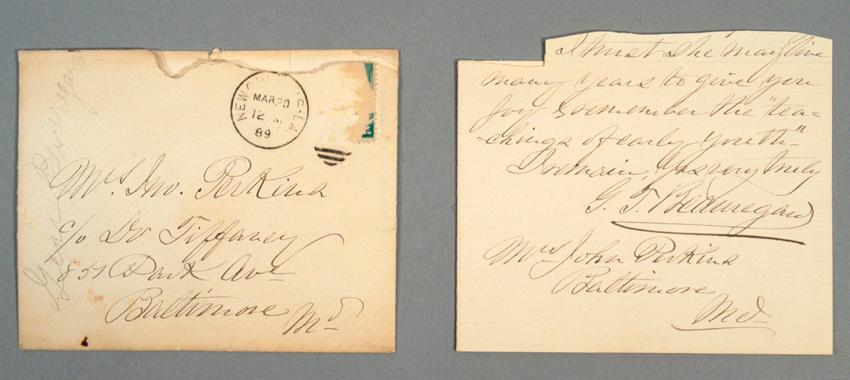 Genl Beauregard
NEW ORLEANS, LA.
MAR 20
12 M
89
Mrs. Jno. Perkins
c/o Dr Tiffaney
851 Park Ave
Baltimore
Md
I trust she may live
many years to give you
joy & remember the "tea-
-chings of early youth"
I remain, Yrs very truly
G. T. Beauregard
Mrs John Perkins
Baltimore
Md